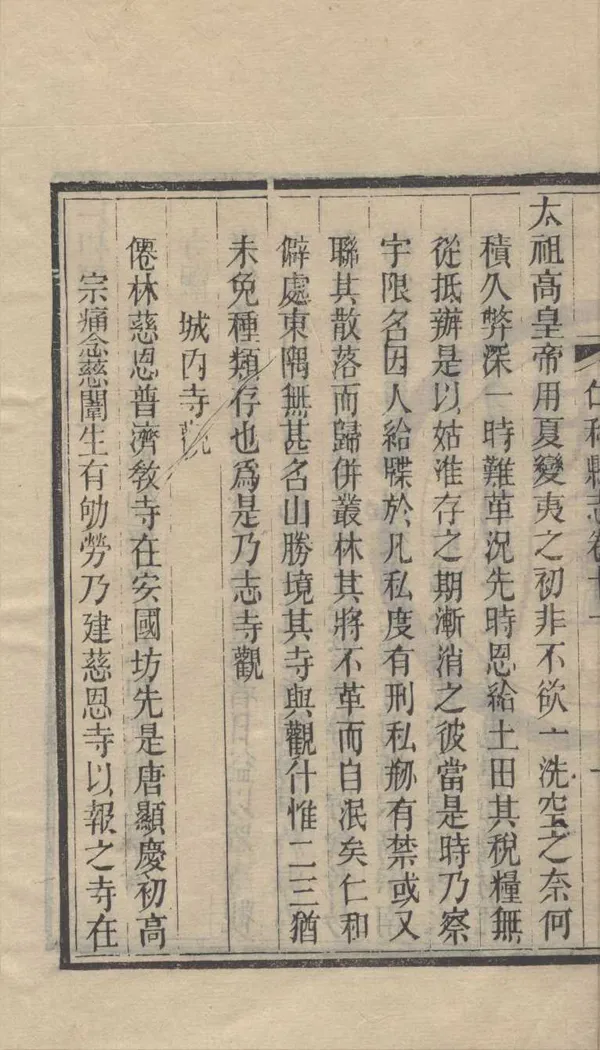 仁和縣志卷十一
太祖高皇帝用夏變夷之初非不欲一洗空之奈何
積久弊深一時難革況先時恩給土田其稅糧無
從抵辦是以姑准存之期漸消之彼當是時乃察
字限名因人給牒於凡私度有刑私剏有禁或又
聯其散落而歸併叢林其將不革而自泯矣仁和
僻處東隅無甚名山勝境其寺與觀什惟二三猶
未免種類存也爲是乃志寺觀
城內寺觀
僊林慈恩普濟教寺在安國坊先是唐顯慶初高
宗痛念慈闈生有劬勞乃建慈恩寺以報之寺在